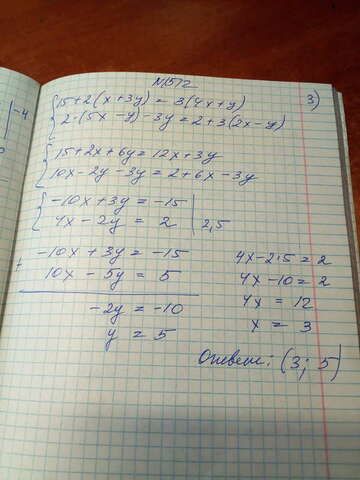 №572
3)
15+2(x+3y) = 3(4x+y)
2·(5x-y)-3y=2+3(2x-y)
15+2x+6y=12x+3y
10x-2y-3y=2+6x-3y
-10x+3y=-15
4x-2y = 2 | 2,5
-10x+3y=-15
+
10x-5y=5
-2y=-10
y=5
4x-2·5=2
4x-10=2
4x=12
x=3
Ответ: (3; 5)
-4